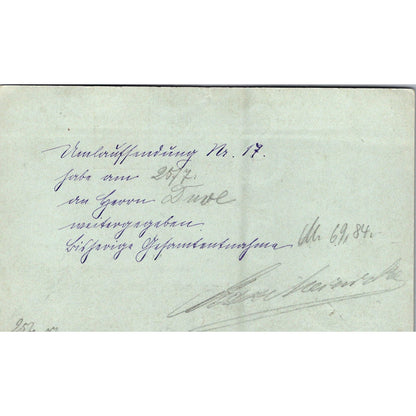 Umlaufsendung Nr. 17.
habe am 25/7.
an Herrn
weitergegeben.
Bisherige Gesamtentnahme M. 69,84.